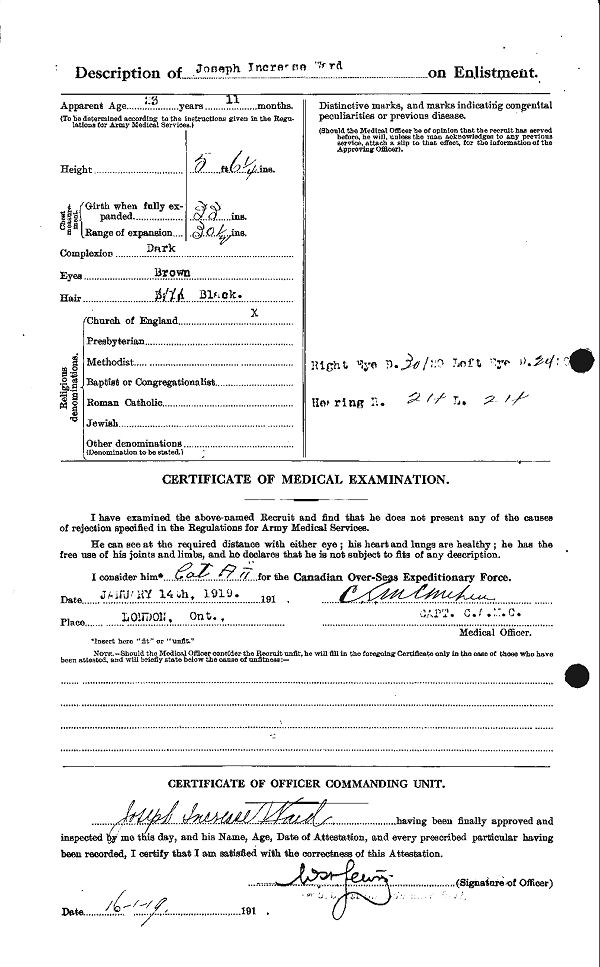 Description of Joseph Increase Ward on Enlistment.
Apparent Age 23 years 11 months.
(To be determined according to the instructions given in the Regulations for Army Medical Services.)
Height 5 ft 6¼ ins.
Chest measurement.
Girth when fully expanded 33 ins.
Range of expansion 30½ ins.
Complexion Dark
Eyes Brown
Hair Black.
Religious denominations.
Church of England X
Presbyterian
Methodist
Baptist or Congregationalist
Roman Catholic
Jewish
Other denominations
(Denomination to be stated.)
Distinctive marks, and marks indicating congenital
peculiarities or previous disease.
(Should the Medical Officer be of opinion that the recruit has served
before, he will, unless the man acknowledges to any previous
service, attach a slip to that effect, for the information of the
Approving Officer).
Right Eye D. 30/20 Left Eye D. 24/
Hearing R. L.
CERTIFICATE OF MEDICAL EXAMINATION.
I have examined the above-named Recruit and find that he does not present any of the causes
of rejection specified in the Regulations for Army Medical Services.
He can see at the required distance with either eye; his heart and lungs are healthy; he has the
free use of his joints and limbs, and he declares that he is not subject to fits of any description.
I consider him* Cat A II for the Canadian Over-Seas Expeditionary Force.
Date JANUARY 14th, 1919. 191
Place LONDON, Ont.,
CAPT. C.A.M.C.
Medical Officer.
*Insert here "fit" or "unfit."
NOTE.—Should the Medical Officer consider the Recruit unfit, he will fill in the foregoing Certificate only in the case of those who have
been attested, and will briefly state below the cause of unfitness:—
CERTIFICATE OF OFFICER COMMANDING UNIT.
Joseph Increase Ward having been finally approved and
inspected by me this day, and his Name, Age, Date of Attestation, and every prescribed particular having
been recorded, I certify that I am satisfied with the correctness of this Attestation.
(Signature of Officer)
Date 16-1-19. 191 .